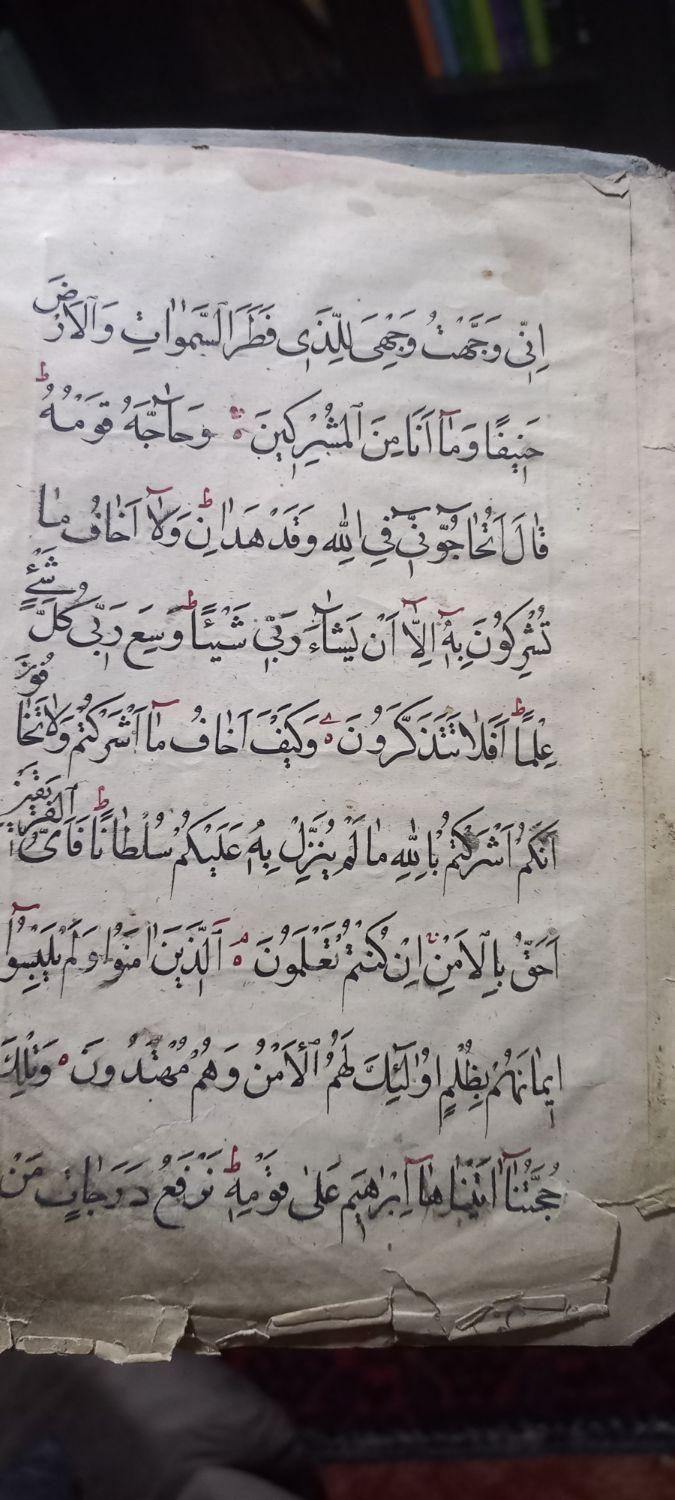 اِنِّى وَجَّهْتُ وَجْهِىَ لِلَّذِى فَطَرَ السَّمٰوَاتِ وَالْاَرْضَ
حَنِيفًا وَمَآ اَنَا مِنَ الْمُشْرِكِينَ ه وَحَآجَّهُ قَوْمُهُ ط
قَالَ اَتُحَآجُّوٓنِّى فِى اللّٰهِ وَقَدْ هَدَانِ ط وَلَآ اَخَافُ مَا
تُشْرِكُونَ بِهٖٓ اِلَّآ اَنْ يَشَآءَ رَبِّى شَيْئًا ط وَسِعَ رَبِّى كُلَّ شَىْءٍ
عِلْمًا ط اَفَلَا تَتَذَكَّرُونَ ه وَكَيْفَ اَخَافُ مَآ اَشْرَكْتُمْ وَلَا تَخَافُونَ
اَنَّكُمْ اَشْرَكْتُمْ بِاللّٰهِ مَا لَمْ يُنَزِّلْ بِهٖ عَلَيْكُمْ سُلْطَانًا ط فَاَىُّ الْفَرِيقَيْنِ
اَحَقُّ بِالْاَمْنِ اِنْ كُنْتُمْ تَعْلَمُونَ ه اَلَّذِينَ اٰمَنُوا وَلَمْ يَلْبِسُوٓا
اِيمَانَهُمْ بِظُلْمٍ اُولٰٓئِكَ لَهُمُ الْاَمْنُ وَهُمْ مُهْتَدُونَ ه وَتِلْكَ
حُجَّتُنَآ اٰتَيْنَاهَآ اِبْرٰهِيمَ عَلٰى قَوْمِهٖ ط نَرْفَعُ دَرَجَاتٍ مَنْ